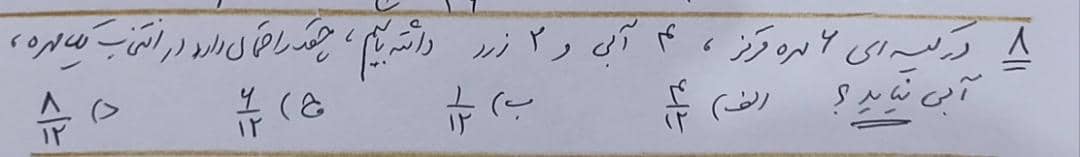 ۸ در کیسه ای ۶ مهره قرمز ، ۴ آبی و ۲ زرد داشته باشیم ، چقدر احتمال دارد در انتخاب یک مهره ،
آبی نیاید ؟ الف) ۴/۱۲ ب) ۱/۱۲ ج) ۶/۱۲ د) ۸/۱۲